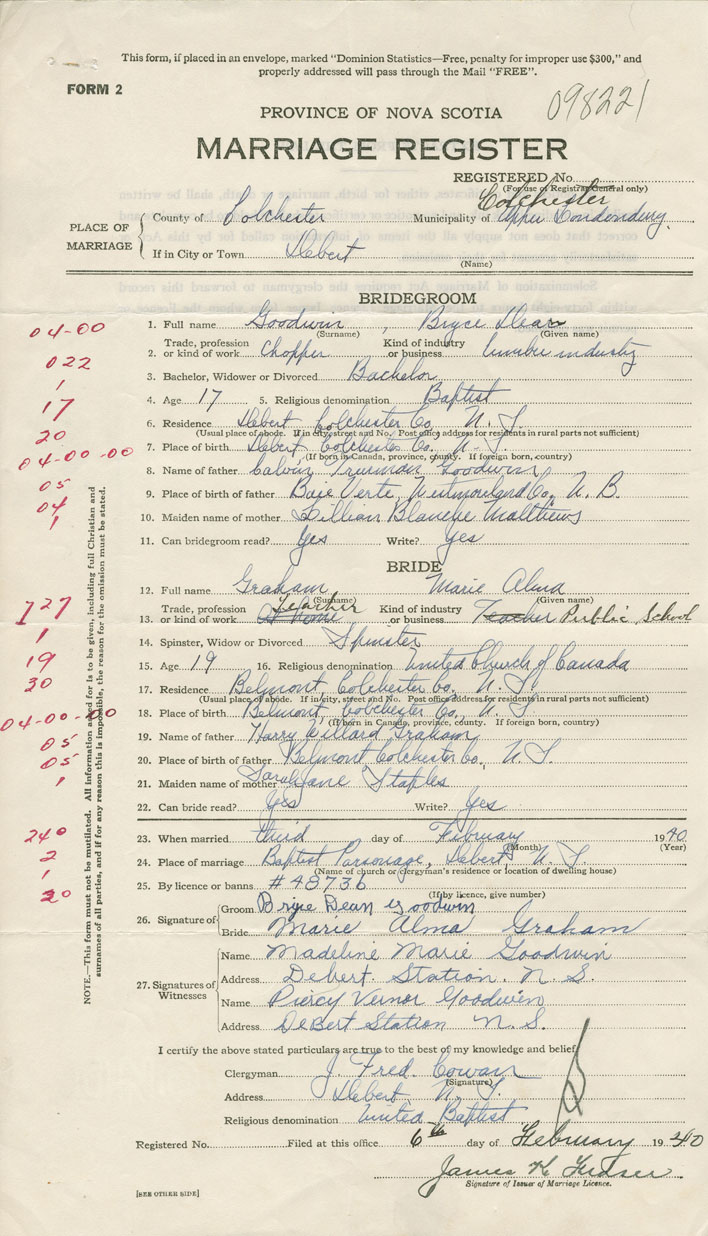 This form, if placed in an envelope, marked "Dominion Statistics—Free, penalty for improper use $300," and
properly addressed will pass through the Mail "FREE".
FORM 2
098221
PROVINCE OF NOVA SCOTIA
MARRIAGE REGISTER
REGISTERED No.
(For use of Registrar General only)
Colchester
PLACE OF MARRIAGE
County of Colchester Municipality of Upper Londonderry.
If in City or Town Debert
(Name)
BRIDEGROOM
04-00 1. Full name Goodwin, Bryce Dean
(Surname) (Given name)
022 2. Trade, profession or kind of work Chopper Kind of industry or business lumber industry
1 3. Bachelor, Widower or Divorced Bachelor
17 4. Age 17 5. Religious denomination Baptist
20 6. Residence Debert Colchester Co. N. S.
(Usual place of abode. If in city, street and No. Post office address for residents in rural parts not sufficient)
04-00-00 7. Place of birth Debert Colchester Co. N. S.
(If born in Canada, province, county. If foreign born, country)
05 8. Name of father Calvin Trueman Goodwin
04 9. Place of birth of father Baie Verte, Westmoreland Co., N. B.
1 10. Maiden name of mother Lillian Blanche Matthews
11. Can bridegroom read? Yes Write? yes
BRIDE
12. Full name Graham Marie Alma
(Surname) (Given name)
727 13. Trade, profession or kind of work At home Teacher Kind of industry or business Teacher Public School
1 14. Spinster, Widow or Divorced Spinster
19 15. Age 19 16. Religious denomination United Church of Canada
30 17. Residence Belmont Colchester Co. N. S.
(Usual place of abode. If in city, street and No. Post office address for residents in rural parts not sufficient)
04-00-00 18. Place of birth Belmont, Colchester Co., N. S.
(If born in Canada, province, county. If foreign born, country)
05 19. Name of father Harry Willard Graham
05 20. Place of birth of father Belmont Colchester Co., N. S.
1 21. Maiden name of mother Sarah Jane Staples
22. Can bride read? Yes Write? Yes
240 23. When married third day of February 1940
(Month) (Year)
2 24. Place of marriage Baptist Parsonage, Debert N. S.
(Name of church or clergyman's residence or location of dwelling house)
1 25. By licence or banns #48736
(If by licence, give number)
20 26. Signature of
Groom Bryce Dean Goodwin
Bride Marie Alma Graham
27. Signatures of Witnesses
Name Madeline Marie Goodwin
Address Debert Station. N. S.
Name Piercy Vernor Goodwin
Address Debert Station N. S.
I certify the above stated particulars are true to the best of my knowledge and belief
Clergyman J. Fred Cowan
(Signature)
Address Debert N. S.
Religious denomination United Baptist
Registered No. Filed at this office 6th day of February 1940
James K
Signature of Issuer of Marriage Licence.
[SEE OTHER SIDE]
NOTE.—This form must not be mutilated. All information asked for is to be given, including full Christian and
surnames of all parties, and if for any reason this is impossible, the reason for the omission must be stated.